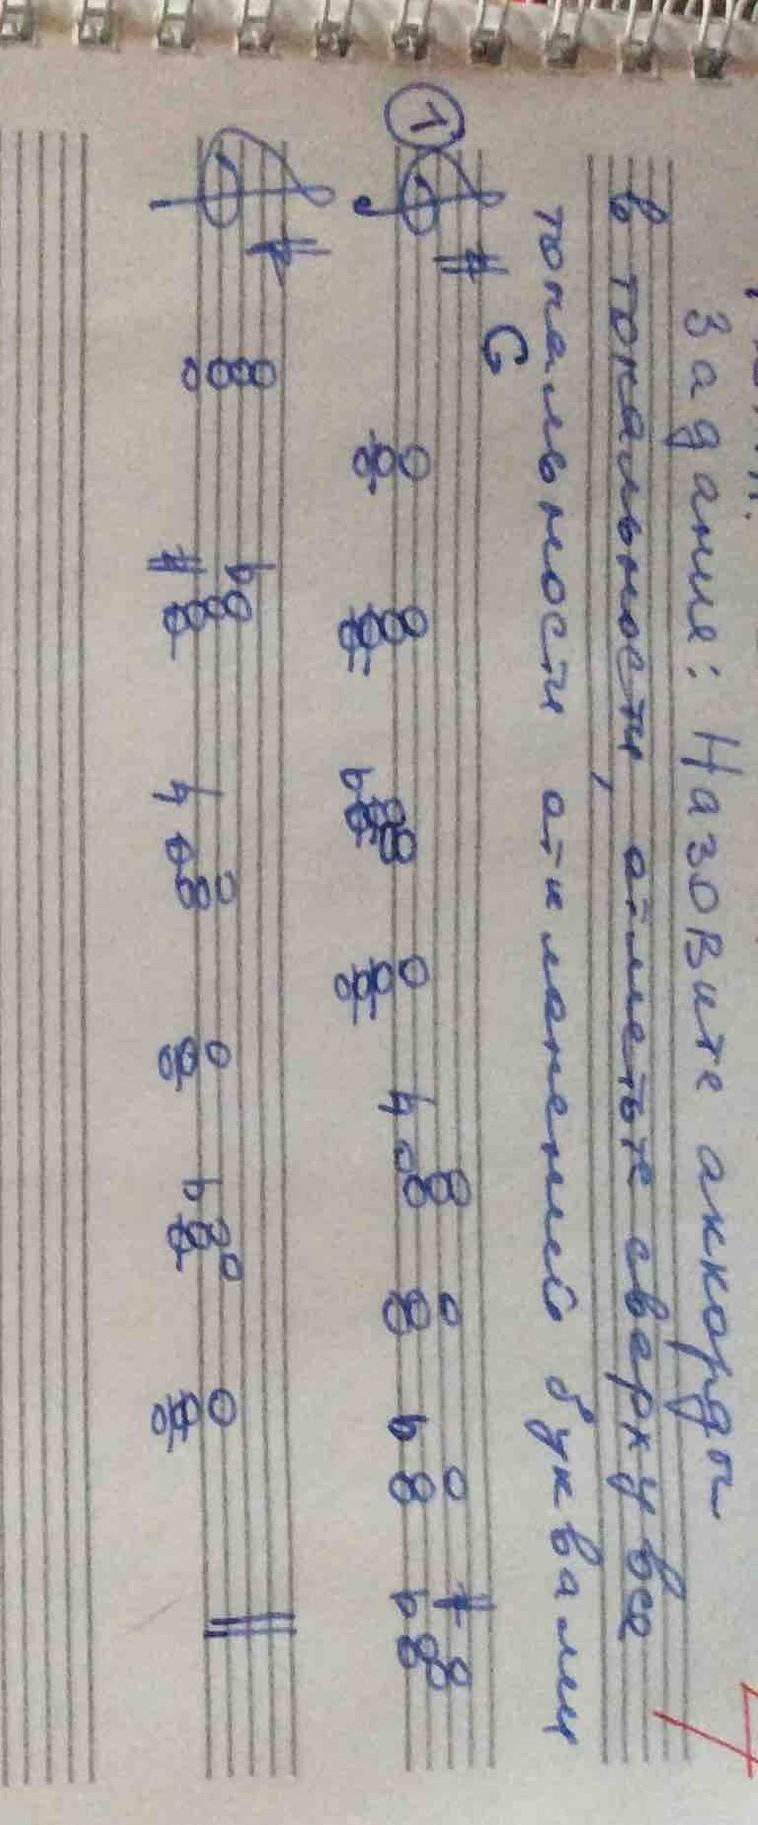 Задание: Назовите аккорды
в тональности, отметьте сверху все
тональности отклонений буквами
1
G